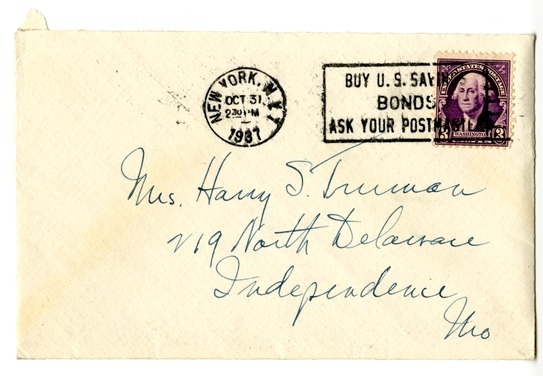 NEW YORK, N.Y.
OCT 31
2 30 PM
1937
BUY U. S. SAVINGS
BONDS
ASK YOUR POSTMASTER
UNITED STATES POSTAGE
WASHINGTON
3 3
Mrs. Harry S. Truman
219 North Delaware
Independence
Mo